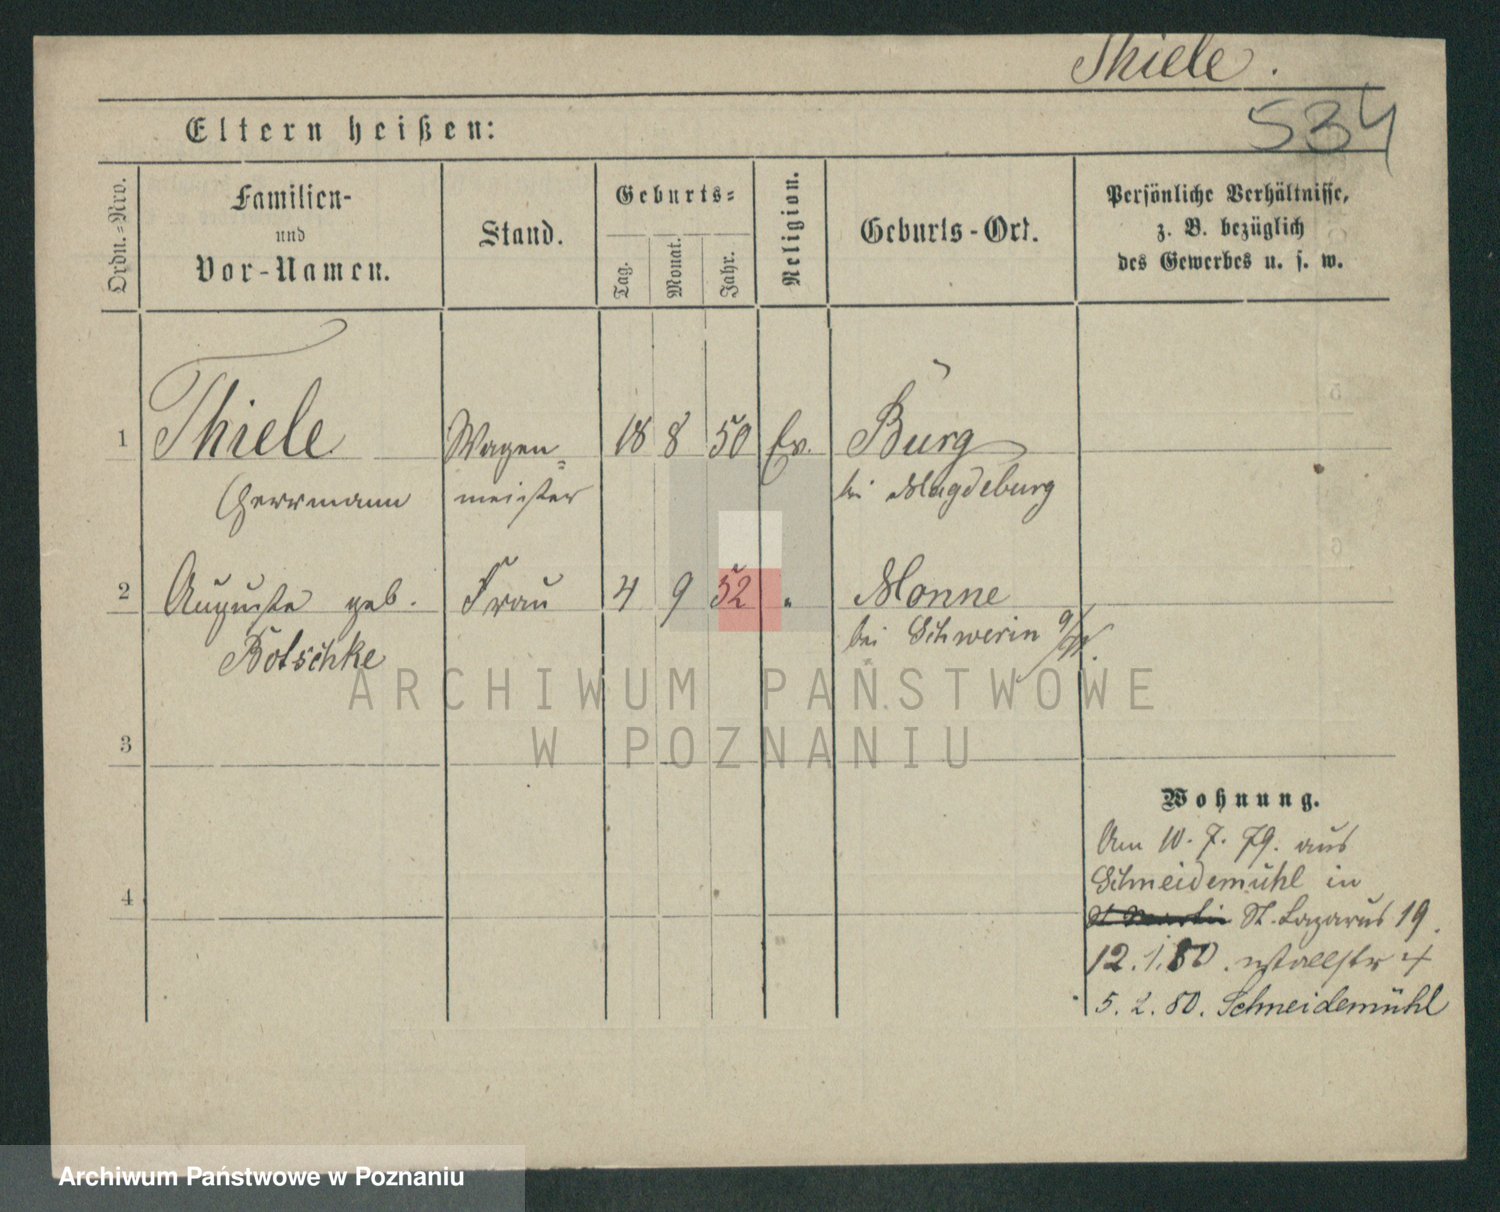 Thiele.
534
Eltern heißen:
Ordn.=Nro.
Familien-
und
Vor-Namen.
Stand.
Geburts=
Tag.
Monat.
Jahr.
Religion.
Geburts-Ort.
Persönliche Verhältnisse,
z. B. bezüglich
des Gewerbes u. s. w.
1 Thiele Wagen= 18 8 50 Ev. Burg
Herrmann meister bei Magdeburg
2 Auguste geb. Frau 4 9 52 " Monne
Botschke bei Schwerin a/W.
ARCHIWUM PAŃSTWOWE
W POZNANIU
3
Wohnung.
Am 10. 7. 79. aus
Schneidemühl in
4 St Martin St. Lazarus 19.
12. 1. 80. 4
5. 2. 80. Schneidemühl
Archiwum Państwowe w Poznaniu